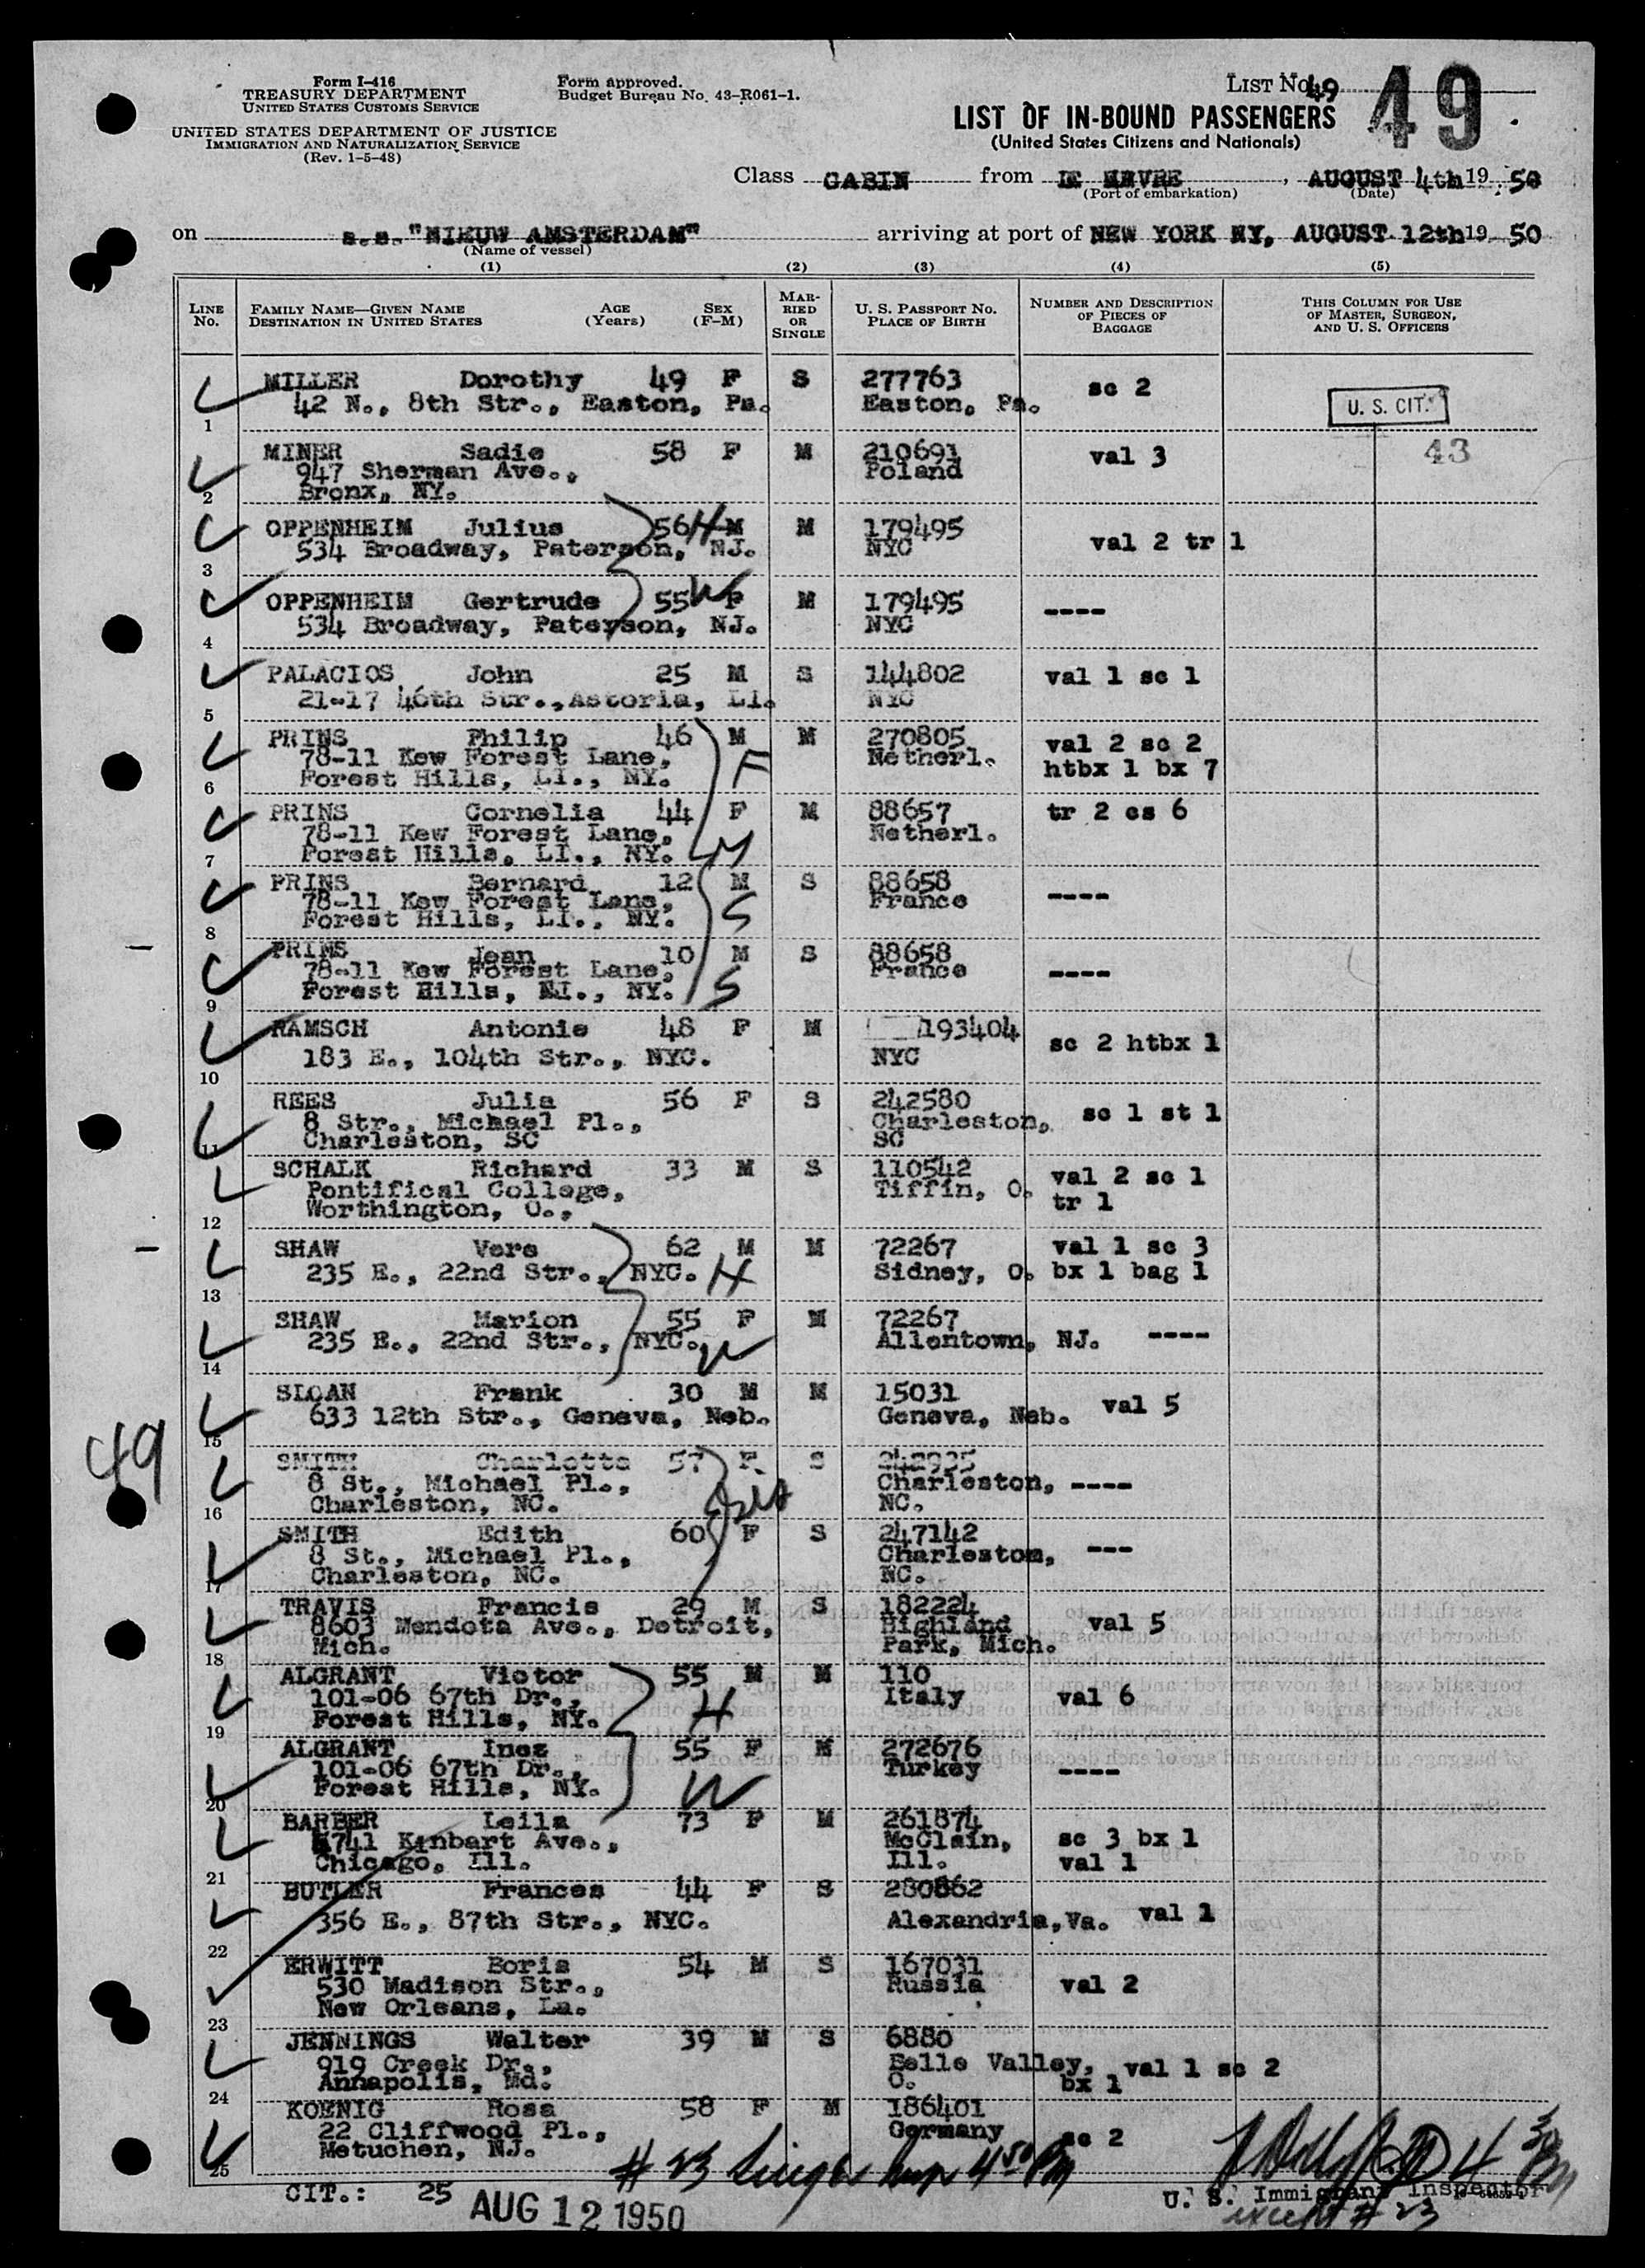 Form I-416
TREASURY DEPARTMENT
UNITED STATES CUSTOMS SERVICE
UNITED STATES DEPARTMENT OF JUSTICE
IMMIGRATION AND NATURALIZATION SERVICE
(Rev. 1-5-48)
Form approved.
Budget Bureau No. 43-R061-1.
LIST No. 49
49
LIST OF IN-BOUND PASSENGERS
(United States Citizens and Nationals)
Class CABIN from LE HAVRE, AUGUST 4th 19 50
(Port of embarkation) (Date)
on s.s. "NIEUW AMSTERDAM" arriving at port of NEW YORK NY, AUGUST 12th 19 50
(Name of vessel)
(1) (2) (3) (4) (5)
LINE No.
FAMILY NAME—GIVEN NAME AGE SEX
DESTINATION IN UNITED STATES (Years) (F-M)
MARRIED OR SINGLE
U. S. PASSPORT No.
PLACE OF BIRTH
NUMBER AND DESCRIPTION OF PIECES OF BAGGAGE
THIS COLUMN FOR USE OF MASTER, SURGEON, AND U. S. OFFICERS
MILLER Dorothy 49 F S 277763 sc 2
42 N., 8th Str., Easton, Pa. Easton, Pa.
U. S. CIT.
1
MINER Sadie 58 F M 210691 val 3 43
947 Sherman Ave., Poland
Bronx, NY.
2
OPPENHEIM Julius 56 H M M 179495 val 2 tr 1
534 Broadway, Paterson, NJ. NYC
3
OPPENHEIM Gertrude 55 W F M 179495 ----
534 Broadway, Paterson, NJ. NYC
4
PALACIOS John 25 M S 144802 val 1 sc 1
21-17 46th Str., Astoria, LI. NYC
5
PRINS Philip 46 M M 270805 val 2 sc 2
78-11 Kew Forest Lane, F Netherl. htbx 1 bx 7
Forest Hills, LI., NY.
6
PRINS Cornelia 44 F M 88657 tr 2 cs 6
78-11 Kew Forest Lane, Netherl.
Forest Hills, LI., NY. M
7
PRINS Bernard 12 M S 88658 ----
78-11 Kew Forest Lane, S France
Forest Hills, LI., NY.
8
PRINS Jean 10 M S 88658 ----
78-11 Kew Forest Lane, France
Forest Hills, LI., NY. S
9
RAMSCH Antonie 48 F M 193404 sc 2 htbx 1
183 E., 104th Str., NYC. NYC
10
REES Julia 56 F S 242580 sc 1 st 1
8 Str., Michael Pl., Charleston,
Charleston, SC SC
11
SCHALK Richard 33 M S 110542 val 2 sc 1
Pontifical College, Tiffin, O. tr 1
Worthington, O.,
12
SHAW Vere 62 M M 72267 val 1 sc 3
235 E., 22nd Str., NYC. H Sidney, O. bx 1 bag 1
13
SHAW Marion 55 F M 72267
235 E., 22nd Str., NYC. W Allentown, NJ. ----
14
SLOAN Frank 30 M M 15031 val 5
633 12th Str., Geneva, Neb. Geneva, Neb.
15
49
SMITH Charlotte 57 F S 242935
8 St., Michael Pl., Charleston, ----
Charleston, NC. NC.
16
SMITH Edith 60 F S 247142 ---
8 St., Michael Pl., Charleston,
Charleston, NC. NC.
17
TRAVIS Francis 29 M S 182224 val 5
8603 Mendota Ave., Detroit, Highland
Mich. Park, Mich.
18
ALGRANT Victor 55 M M 110
101-06 67th Dr., H Italy val 6
Forest Hills, NY.
19
ALGRANT Inez 55 F M 272676
101-06 67th Dr., Turkey ----
Forest Hills, NY. W
20
BARBER Leila 73 F M 261874
4741 Kinbart Ave., McClain, sc 3 bx 1
Chicago, Ill. Ill. val 1
21
BUTLER Frances 44 F S 280862
356 E., 87th Str., NYC. Alexandria, Va. val 1
22
ERWITT Boris 54 M S 167031
530 Madison Str., Russia val 2
New Orleans, La.
23
JENNINGS Walter 39 M S 6880
919 Creek Dr., Belle Valley, val 1 sc 2
Annapolis, Md. O. bx 1
24
KOENIG Rosa 58 F M 186401
22 Cliffwood Pl., Germany sc 2
Metuchen, NJ.
25
# 23 4 50 PM
4 30 PM
CIT.: 25
AUG 12 1950
U. S. Immigrant Inspector
except # 23